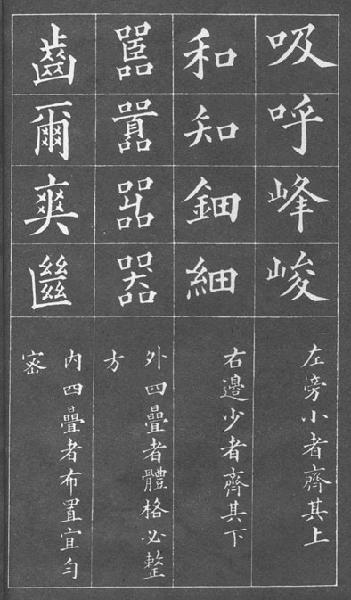 吸呼峰峻
左旁小者齊其上
和知鈿細
右邊少者齊其下
嚚囂嘂器
外四疊者體格必整
方
齒爾爽
內四疊者布置宜勻
密